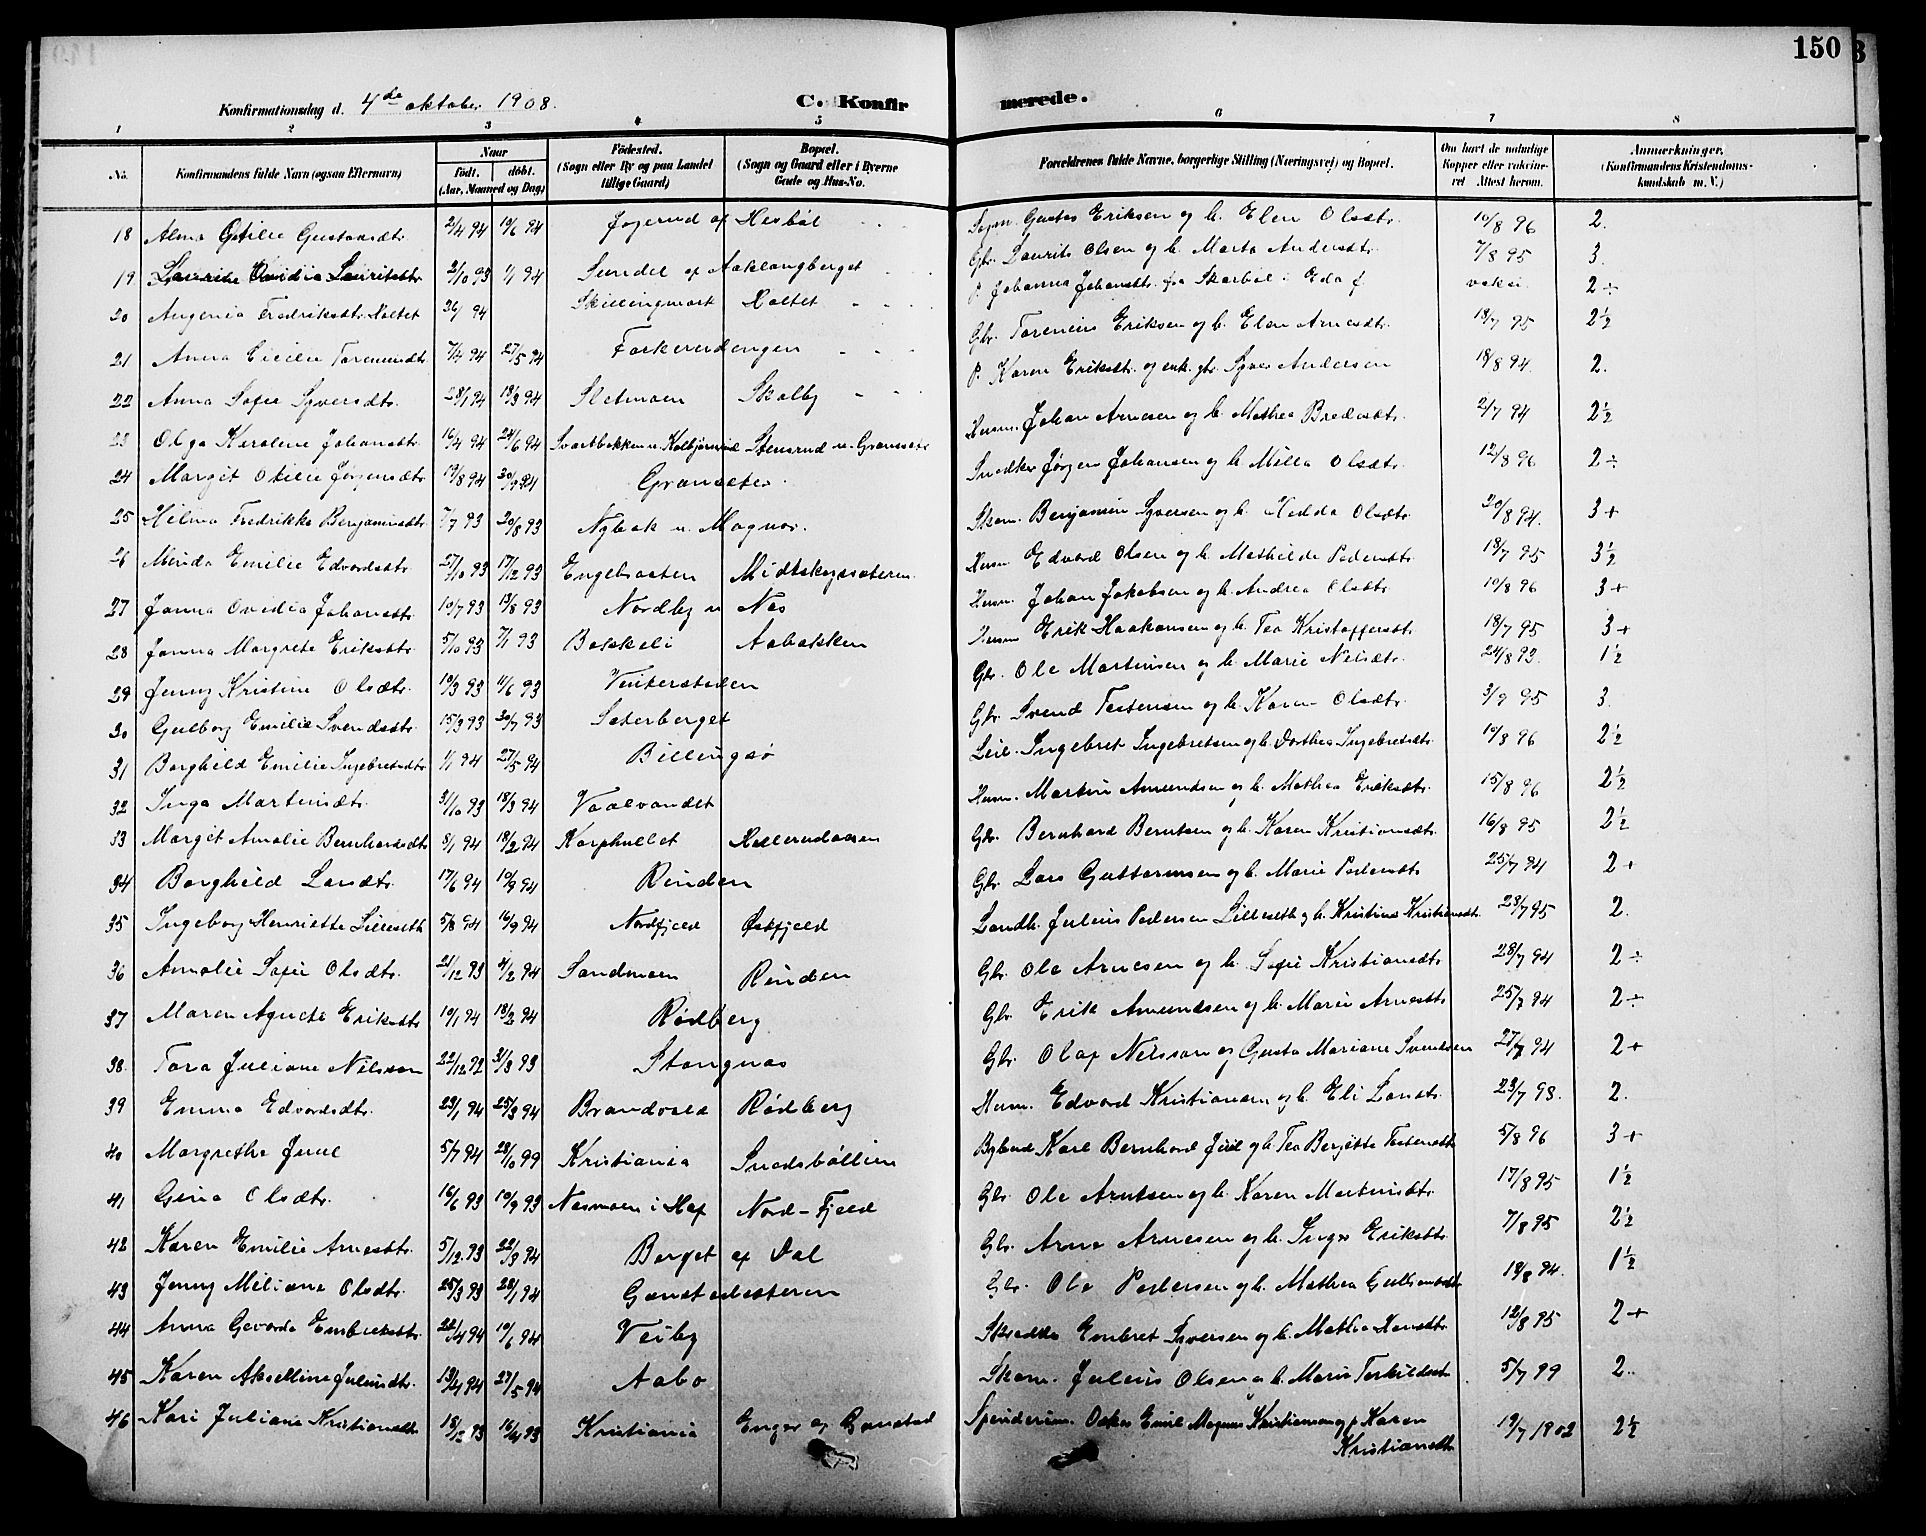 150
Konfirmationsdag d. 4de oktober 1908. C. Konfirmerede.
1 2 3 4 5 6 7 8
No. Konfirmandens fulde Navn (ogsaa Efternavn) Naar født. døbt. (Aar, Maaned og Dag) Fødested. (Sogn eller By og paa Landet tillige Gaard) Bopæl. (Sogn og Gaard eller i Byerne Gade og Hus-No. Forældrenes fulde Navne, borgerlige Stilling (Næringsvej) og Bopæl. Om havt de naturlige Kopper eller vaccineret Attest herom. Anmærkninger, (Konfirmandens Kristendomskundskab m. V.)
18 Alma Otilie Gustavsdtr. 2/4 94 10/6 94 Jogerud af Hesbøl Gustav Eriksen og h. Elen Olsdtr. 10/8 96 2.
19 Laurine Ovidia Lauritsdtr. 2/10 93 1/1 94 Sundet af Aaklangberget Gbr. Laurits Olsen og h. Marta Andersdtr. 7/8 95 3.
20 Augenia Fredriksdtr. Holtet 26/1 94 Skillingmark Holtet P. Johanna Johansdtr. fra Skarbøl i Eda f. vaksi. 2÷
21 Anna Cicilie 7/4 94 27/5 94 Gbr. Eriksen og h. Elen Arnesdtr. 18/7 95 2½
22 Anna Sofie Syversdtr. 28/1 94 18/3 94 Sletmoen Skalby P. Karen Eriksdtr. og enk. gbr. Syver Andersen 18/8 94. 2.
23 Olga Karoline Johansdtr. 16/4 94 24/6 94 Svartbakken u. Kolbjørnrud Stensrud u. Granseter Husm. Johan Arnesen og h. Mathea Bredesdtr. 2/7 94 2½
24 Margit Otilie Jørgensdtr. 19/8 94 30/9 94 Granseter. Snedker Jørgen Johansen og h. Milla Olsdtr. 12/8 96 2÷
25 Hilma Fredrikke Benjaminsdtr. 7/7 93 20/8 93 Nybak u. Magnor. Skom. Benjamin Syversen og h. Hedda Olsdtr. 20/8 94. 3+
26 Minda Emilie Edvardsdtr. 27/10 93 17/12 93 Engebraaten Midtskogsæteren. Husm. Edvard Olsen og h. Mathilde Pedersdtr. 18/7 95 3½
27 Janna Ovidia Johansdtr. 10/7 93 13/8 93 Nordby u Nes Husm. Johan Jakobsen og h. Andrea Olsdtr. 10/8 96 3+
28 Janna Margrete Eriksdtr. 5/10 93 7/1 93 Bakkeli Aabakken Husm Erik Haakonsen og h. Tea Kristoffersdtr. 18/7 95 3+
29 Jenny Kristine Olsdtr. 10/3 93 11/6 93 Vinterstøden Gbr. Ole Martinsen og h. Marie Nilsdtr. 24/8 93. 1½
30 Gulborg Emilie Svendsdtr. 15/3 93 30/7 93 Sæterberget Gbr. Svend Torstensen og h. Karen Olsdtr. 3/9 95 3.
31 Borghild Emilie Ingebretsdtr. 1/1 94 27/5 94 Billingsø Leil. Ingebret Ingebretsen og h. Dorthea Ingebretsdtr. 10/8 96 2½
32 Inga Martinsdtr. 31/10 93 18/3 94 Vaalvandet Husm. Martin Amundsen og h. Mathea Eriksdtr. 15/8 96 2½
33 Margit Amalie Bernhardsdtr 8/1 94 18/2 94 Korphullet Hellerudaasen Gbr. Bernhard Berntsen og h. Karen Kristiansdtr. 16/8 95 2½
34 Borghild Larsdtr. 17/6 94 10/9 94 Rinden Gbr. Lars Guttormsen og h. Marie Pedersdtr. 25/7 94 2+
35 Ingeborg Henriette Lilleseth 5/8 94 16/9 94 Nordfjeld Østfjeld Landh. Julius Pedersen Lilleseth og h. Kristine Kristiansdtr. 23/7 95 2.
36 Amalie Sofie Olsdtr. 21/12 93 4/2 94 Sandmoen Rinden Gbr. Ole Arnesen og h. Sofie Kristiansdtr 28/7 94 2÷
37 Maren Agnete Eriksdtr 10/1 94 18/2 94 Rødberg Gbr. Erik Amundsen og h. Marie Arnesdtr. 25/7 94 2÷
38. Tora Juliane Nilsson 22/12 92 31/3 93 Stangnes Gbr. Olaf Nilsson og Gusta Mariane Svendsen 27/7 94 2+
39 Emma Edvardsdtr. 23/1 94 25/3 94 Brandvold Rødberg Husm. Edvard Kristiansen og h. Eli Larsdtr. 23/7 98. 2.
40 Margrethe Juul 5/7 94 28/10 99 Kristiania Snedsbøllien Karl Bernhard Juul og h. Tea Berjette Torstensdtr 5/8 96 3+
41 Gina Olsdtr. 16/6 93 10/9 93 Nesmoen i Hof Nord-Fjeld Gbr. Ole Arntsen og h. Karen Martinsdtr. 17/8 95 1½
42 Karen Emilie Arnesdtr. 5/12 93 22/3 94 Berget af Dal Gbr. Arne Arnesen og h. Inger Eriksdtr. 7/8 95 2½
43 Jenny Miliane Olsdtr. 25/3 93 28/1 94 Gbr. Ole Pedersen og h. Mathea 18/8 94. 1½
44 Anna Gevarda Embretsdtr. 22/4 94 10/6 94 Veiby Skrædder Embret Syversen og h. Mathea Hansdtr. 12/8 95 2+
45 Karen Akselline Juliusdtr. 13/4 94 27/5 94 Aabo Skom. Julius Olsen og h. Marie Torkildsdtr. 5/7 99 2..
46 Kari Juliane Kristiansdtr 18/12 93 16/4 93 Kristiania Enger og Gonstad Spinderim. Oskar Emil Magnus Kristiansen og p. Karen
Kristiansdtr 19/7 1902 2½